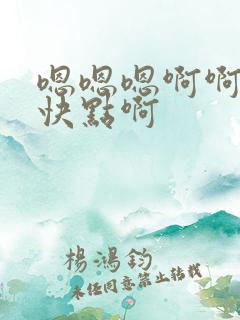 嗯嗯嗯啊啊
快點啊
楊鴻鈞
未经同意禁止转载